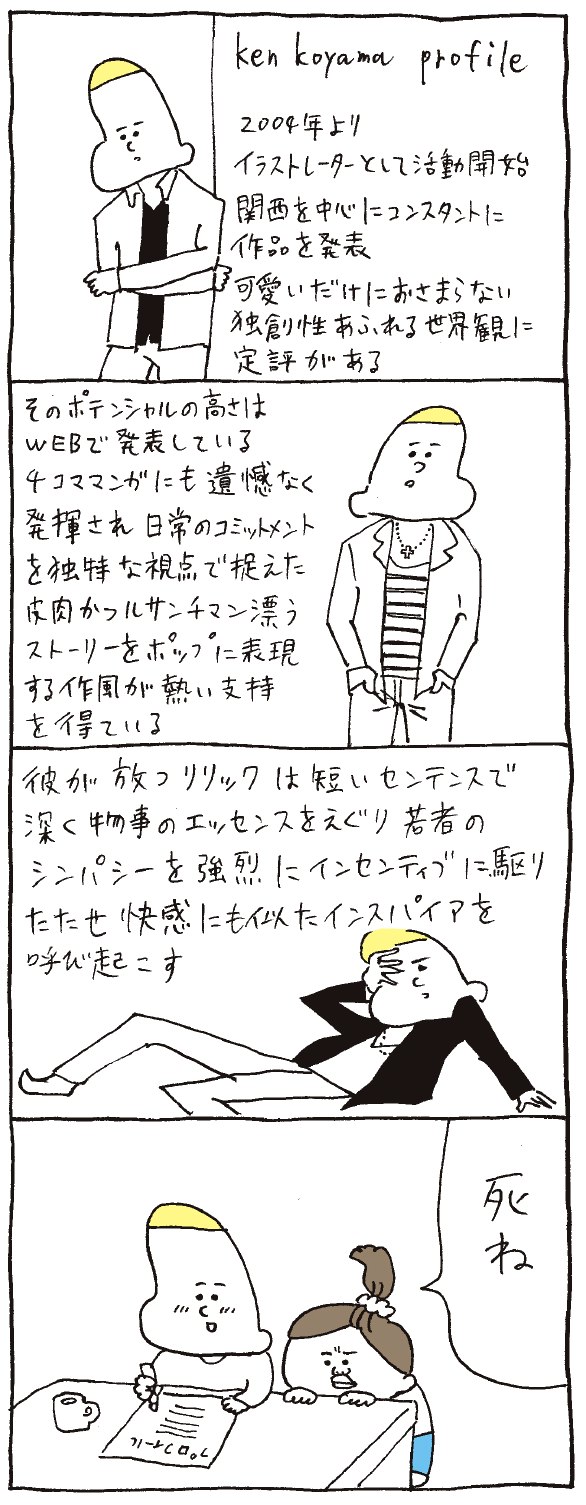 ken koyama profile
2004年より
イラストレーターとして活動開始
関西を中心にコンスタントに
作品を発表
可愛いだけにおさまらない
独創性あふれる世界観に
定評がある
そのポテンシャルの高さは
WEBで発表している
4コママンガにも遺憾なく
発揮され日常のコミットメント
を独特な視点で捉えた
皮肉かつルサンチマン漂う
ストーリーをポップに表現
する作風が熱い支持
を得ている
彼が放つリリックは短いセンテンスで
深く物事のエッセンスをえぐり若者の
シンパシーを強烈にインセンティブに駆り
たたせ快感にも似たインスパイアを
呼び起こす
死ね
プロフィール